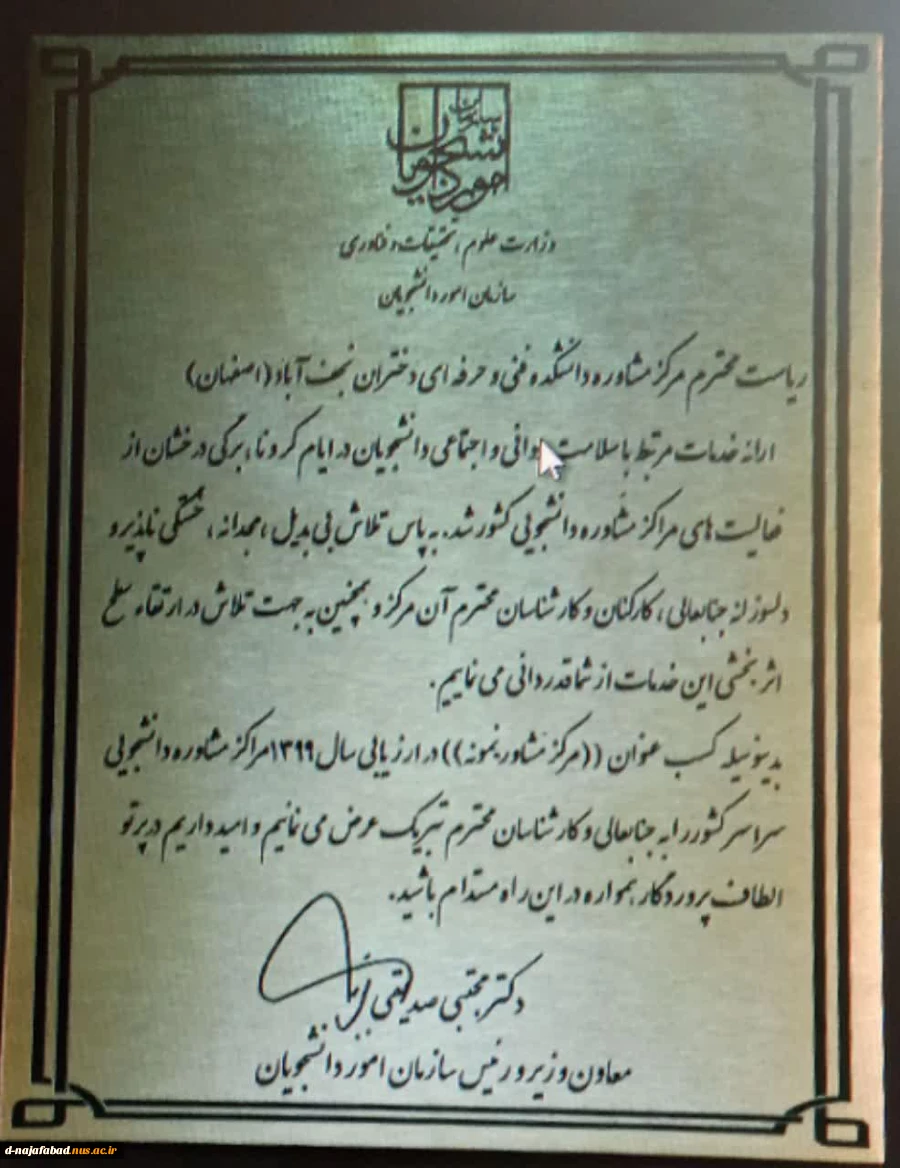 سازمان
امور دانشجویان
وزارت علوم، تحقیقات و فناوری
سازمان امور دانشجویان
ریاست محترم مرکز مشاوره دانشکده فنی و حرفه ای دختران نجف آباد (اصفهان)
ارائه خدمات مرتبط با سلامت روانی و اجتماعی دانشجویان در ایام کرونا، برگی درخشان از
فعالیت های مراکز مشاوره دانشجویی کشور شد. به پاس تلاش بی بدیل، مجدانه، خستگی ناپذیر و
دلسوزانه جنابعالی، کارکنان و کارشناسان محترم آن مرکز و همچنین به جهت تلاش در ارتقاء سطح
اثر بخشی این خدمات از شما قدردانی می نماییم.
بدینوسیله کسب عنوان ((مرکز مشاور نمونه)) در ارزیابی سال ۱۳۹۹ مراکز مشاوره دانشجویی
سراسر کشور را به جنابعالی و کارشناسان محترم تبریک عرض می نمائیم و امید داریم در پرتو
الطاف پروردگار همواره در این راه مستدام باشید.
دکتر مجتبی صدیقی
معاون وزیر و رئیس سازمان امور دانشجویان
d-najafabad.nus.ac.ir